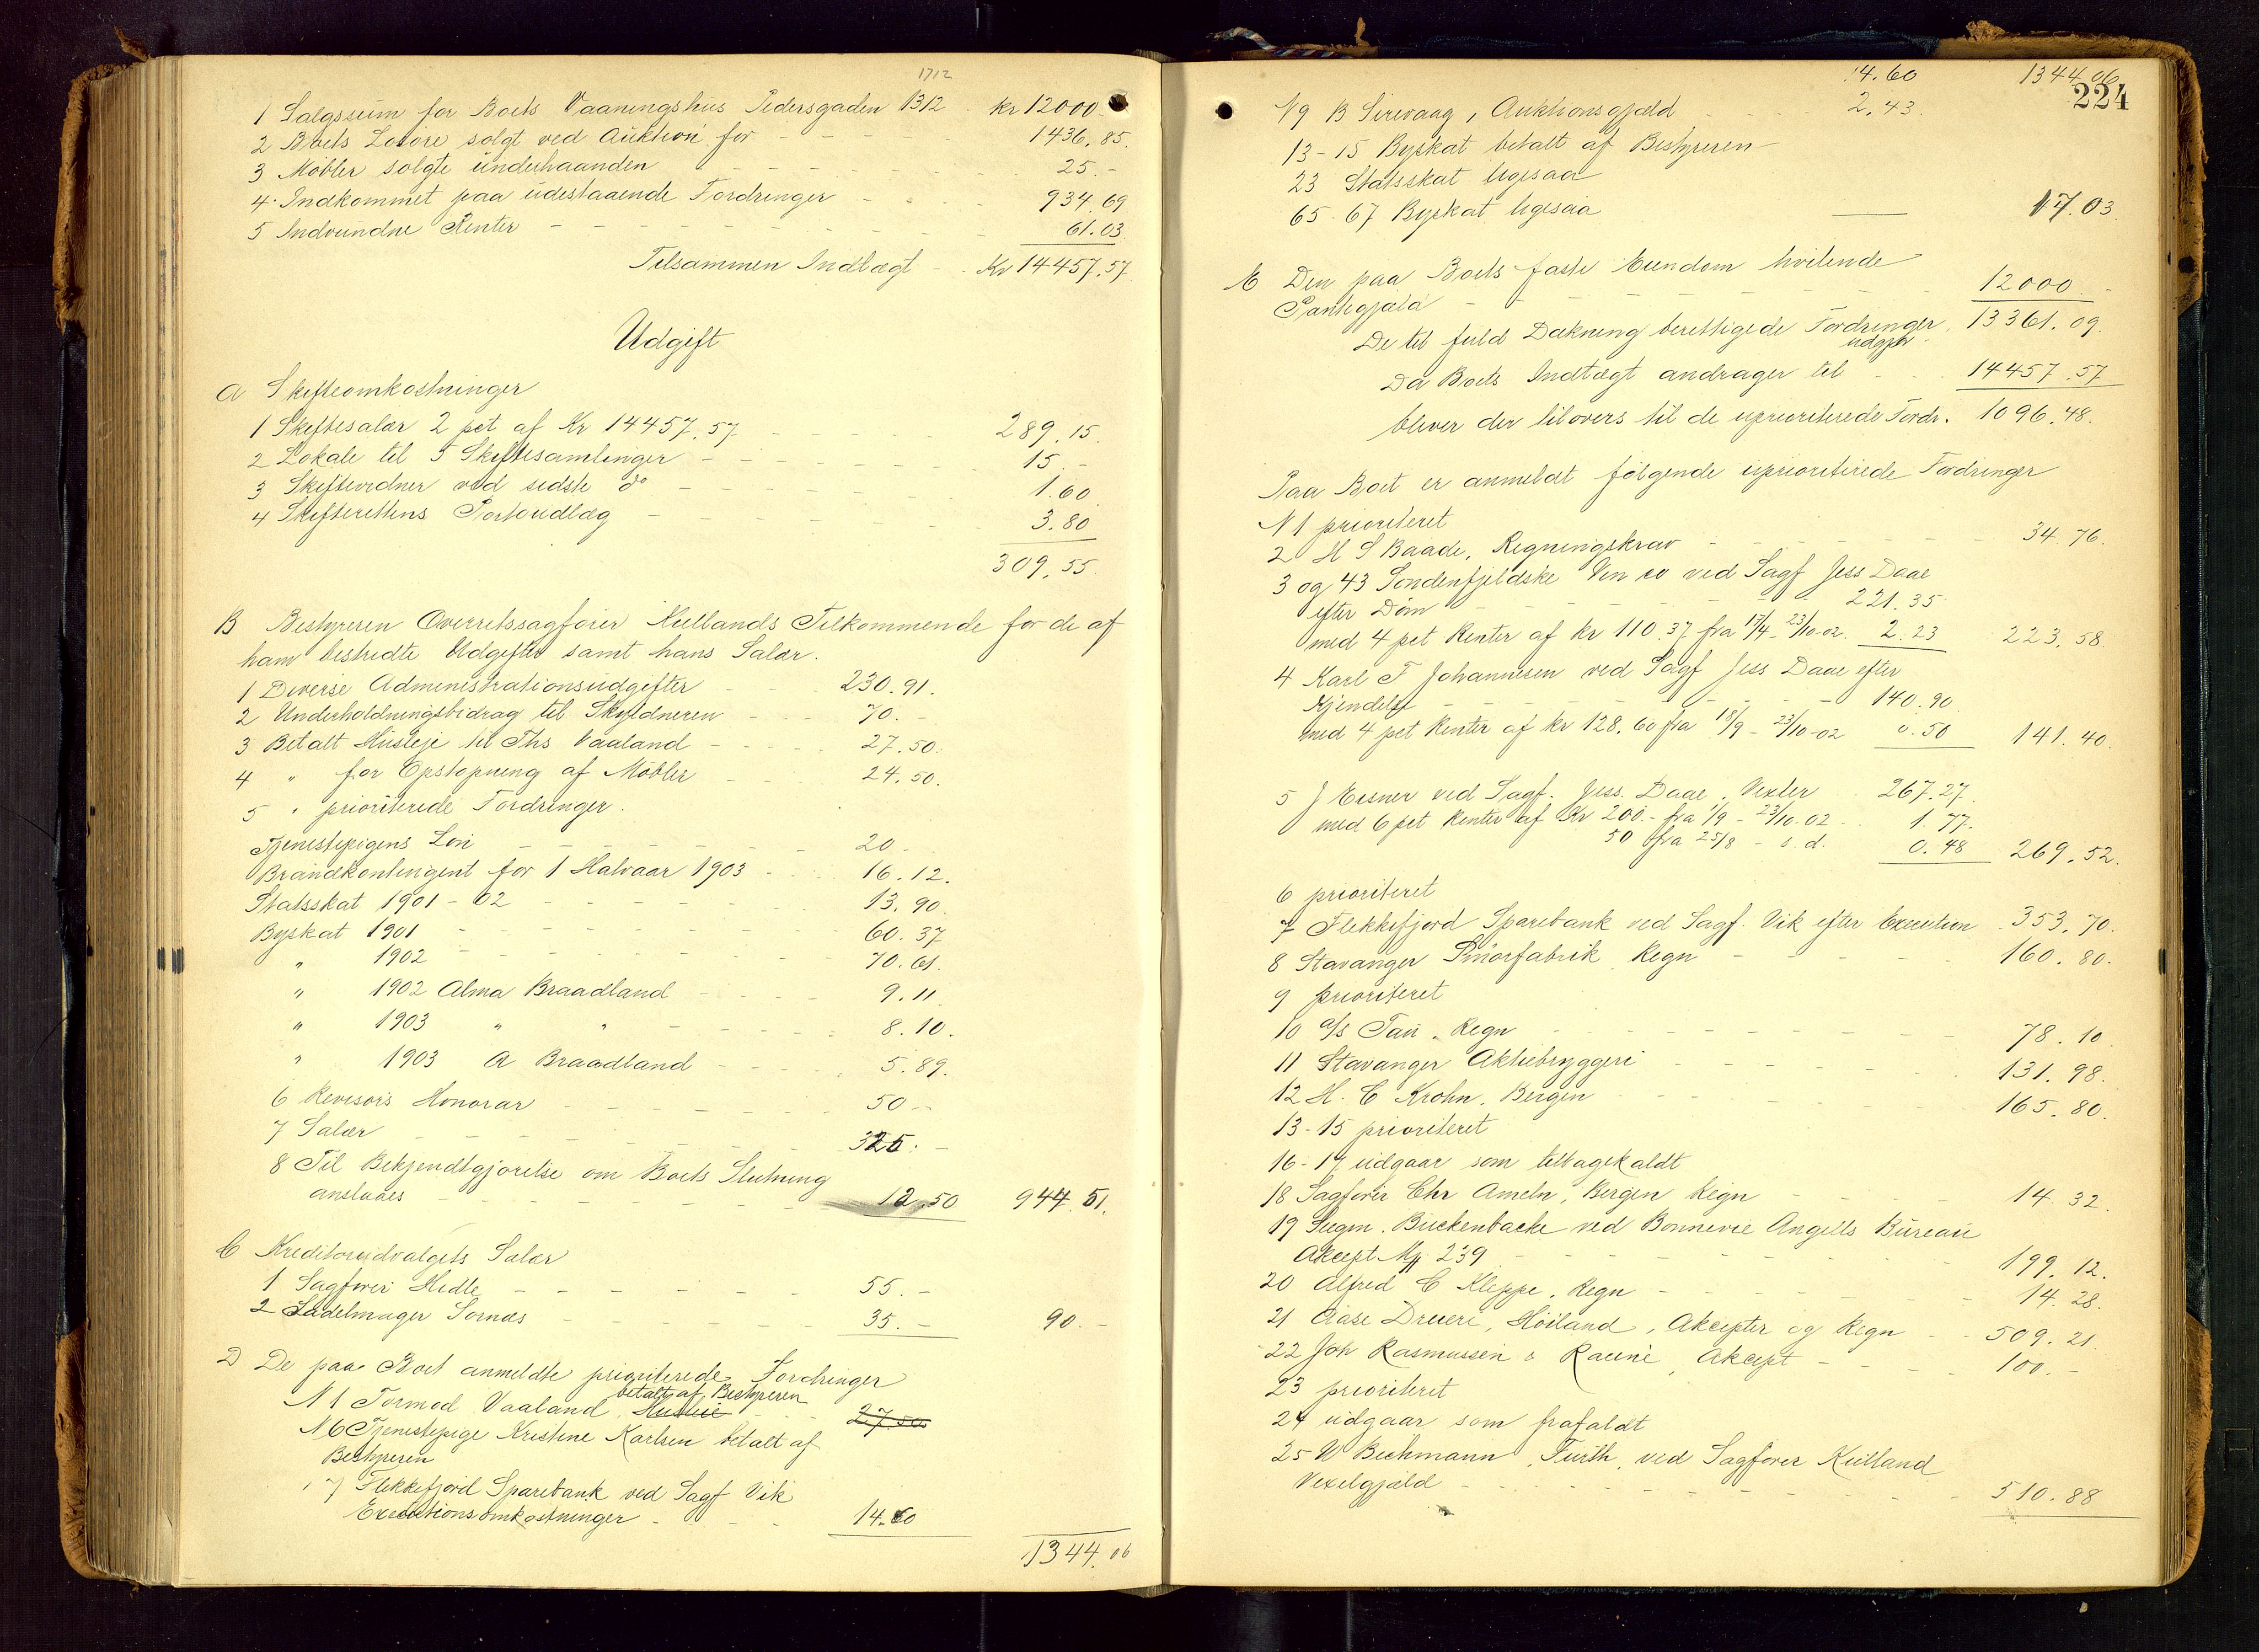 1712
1 Salgssum for Boets Vaaningshus Pedersgaden 1312 Kr 12000
2 Boets Løsøre solgt ved Auktion for 1436.85.
3 Møbler solgte underhaanden 25.-
4 Indkommet paa udestaaende Fordringer 934.69
5 Indvundne Renter 61.03
Tilsammen Indtægt Kr 14457.57
Udgift
A Skifteomkostninger
1 Skiftesalær 2 pct af Kr 14457.57 289.15.
2 Lokale til 5 Skiftesamlinger 15.-
3 Skiftevidner ved sidste do 1.60
4 Skifterettens Portoudlæg 3.80
309.55
B Bestyreren Overretssagfører Kiellands Tilkommende for de af
ham bestridte Udgifter samt hans Salær.
1 Diverse Administrationsudgifter 230.91.
2 Underholdningsbidrag til Skyldneren 70.-
3 Betalt Husleje til Ths Vaaland 27.50.
4 " for Opstopning af Møbler 24.50.
5 " prioriterede Fordringer.
Tjenestepigens Løn 20
Brandkontingent for 1 Halvaar 1903 16.12.
Statsskat 1901-02 13.90
Byskat 1901 60.37
" 1902 70.61.
" 1902 Alma Braadland 9.11
" 1903 " " 8.10.
" 1903 A Braadland 5.89.
6 Revisors Honorar 50.-
7 Salær 325.-
8 Til Bekjendtgjørelse om Boets Slutning
anslaaes 12.50 944.51.
C Kreditorudvalgets Salær
1 Sagfører Hidle 55.-
2 Sadelmager Sørnæs 35.- 90.-
D De paa Boet anmeldte prioriterede Fordringer
betalt af Bestyreren
N 1 Tormod Vaaland Husleie 27.50
N 6 Tjenestepige Kristine Karlsen betalt af
Bestyreren
" 7 Flekkefjord Sparebank ved Sagf Vik
Executionsomkostninger 14.60
1344.06
14.60 1344.06
224
N 9 B Sirevaag, Auktionsgjæld 2.43.
13-15 Byskat betalt af Bestyreren
23 Statsskat ligesaa
65-67 Byskat ligesaa 17.03
E Den paa Boets faste Eiendom hvilende
Pantegjæld 12000
De til fuld Dækning berettigede Fordringer 13361.09.
udgjør
Da Boets Indtægt andrager til 14457.57
bliver der tilovers til de uprioriterede Fordr. 1096.48.
Paa Boet er anmeldt følgende uprioriterede Fordringer
N 1 prioriteret
2 H S Baade, Regningskrav 34.76.
3 og 43 Søndenfjeldske Vin co ved Sagf Jess Daae
efter Dom 221.35
med 4 pct Renter af Kr 110.37 fra 17/4-23/10-02. 2.23 223.58.
4 Karl F Johannesen ved Sagf Jess Daae efter
Kjendelse 140.90
med 4 pct Renter af Kr 128.60 fra 18/9-23/10-02 0.50 141.40.
5 J Eisner ved Sagf. Jess. Daae, Vexler 267.27.
med 6 pct Renter af Kr 200.- fra 1/9-23/10.02 1.77.
50 fra 25/8 - s.d. 0.48 269.52.
6 prioriteret
7 Flekkefjord Sparebank ved Sagf. Vik efter Execution 353.70.
8 Stavanger Smørfabrik Regn 160.80.
9 prioriteret
10 A/s Tau, Regn 78.10
11 Stavanger Aktiebryggeri 131.98.
12 H. C Krohn, Bergen 165.80.
13-15 prioriteret
16-17 udgaar som tilbagekaldt
18 Sagfører Chr Ameln, Bergen Regn 14.32.
19 Siegm. Bückenbacke ved Bonnevie Angells Bureau
Akcept Mg 239 199.12.
20 Alfred C Kleppe, Regn 14.28.
21 Aase Drueri, Høiland, Akcepter og Regn 509.21
22 Joh Rasmussen & Racine, Akcept 100.-
23 prioriteret
24 udgaar som frafaldt
25 W Bechmann, Fürth, ved Sagfører Kielland
Vexelgjæld 510.88